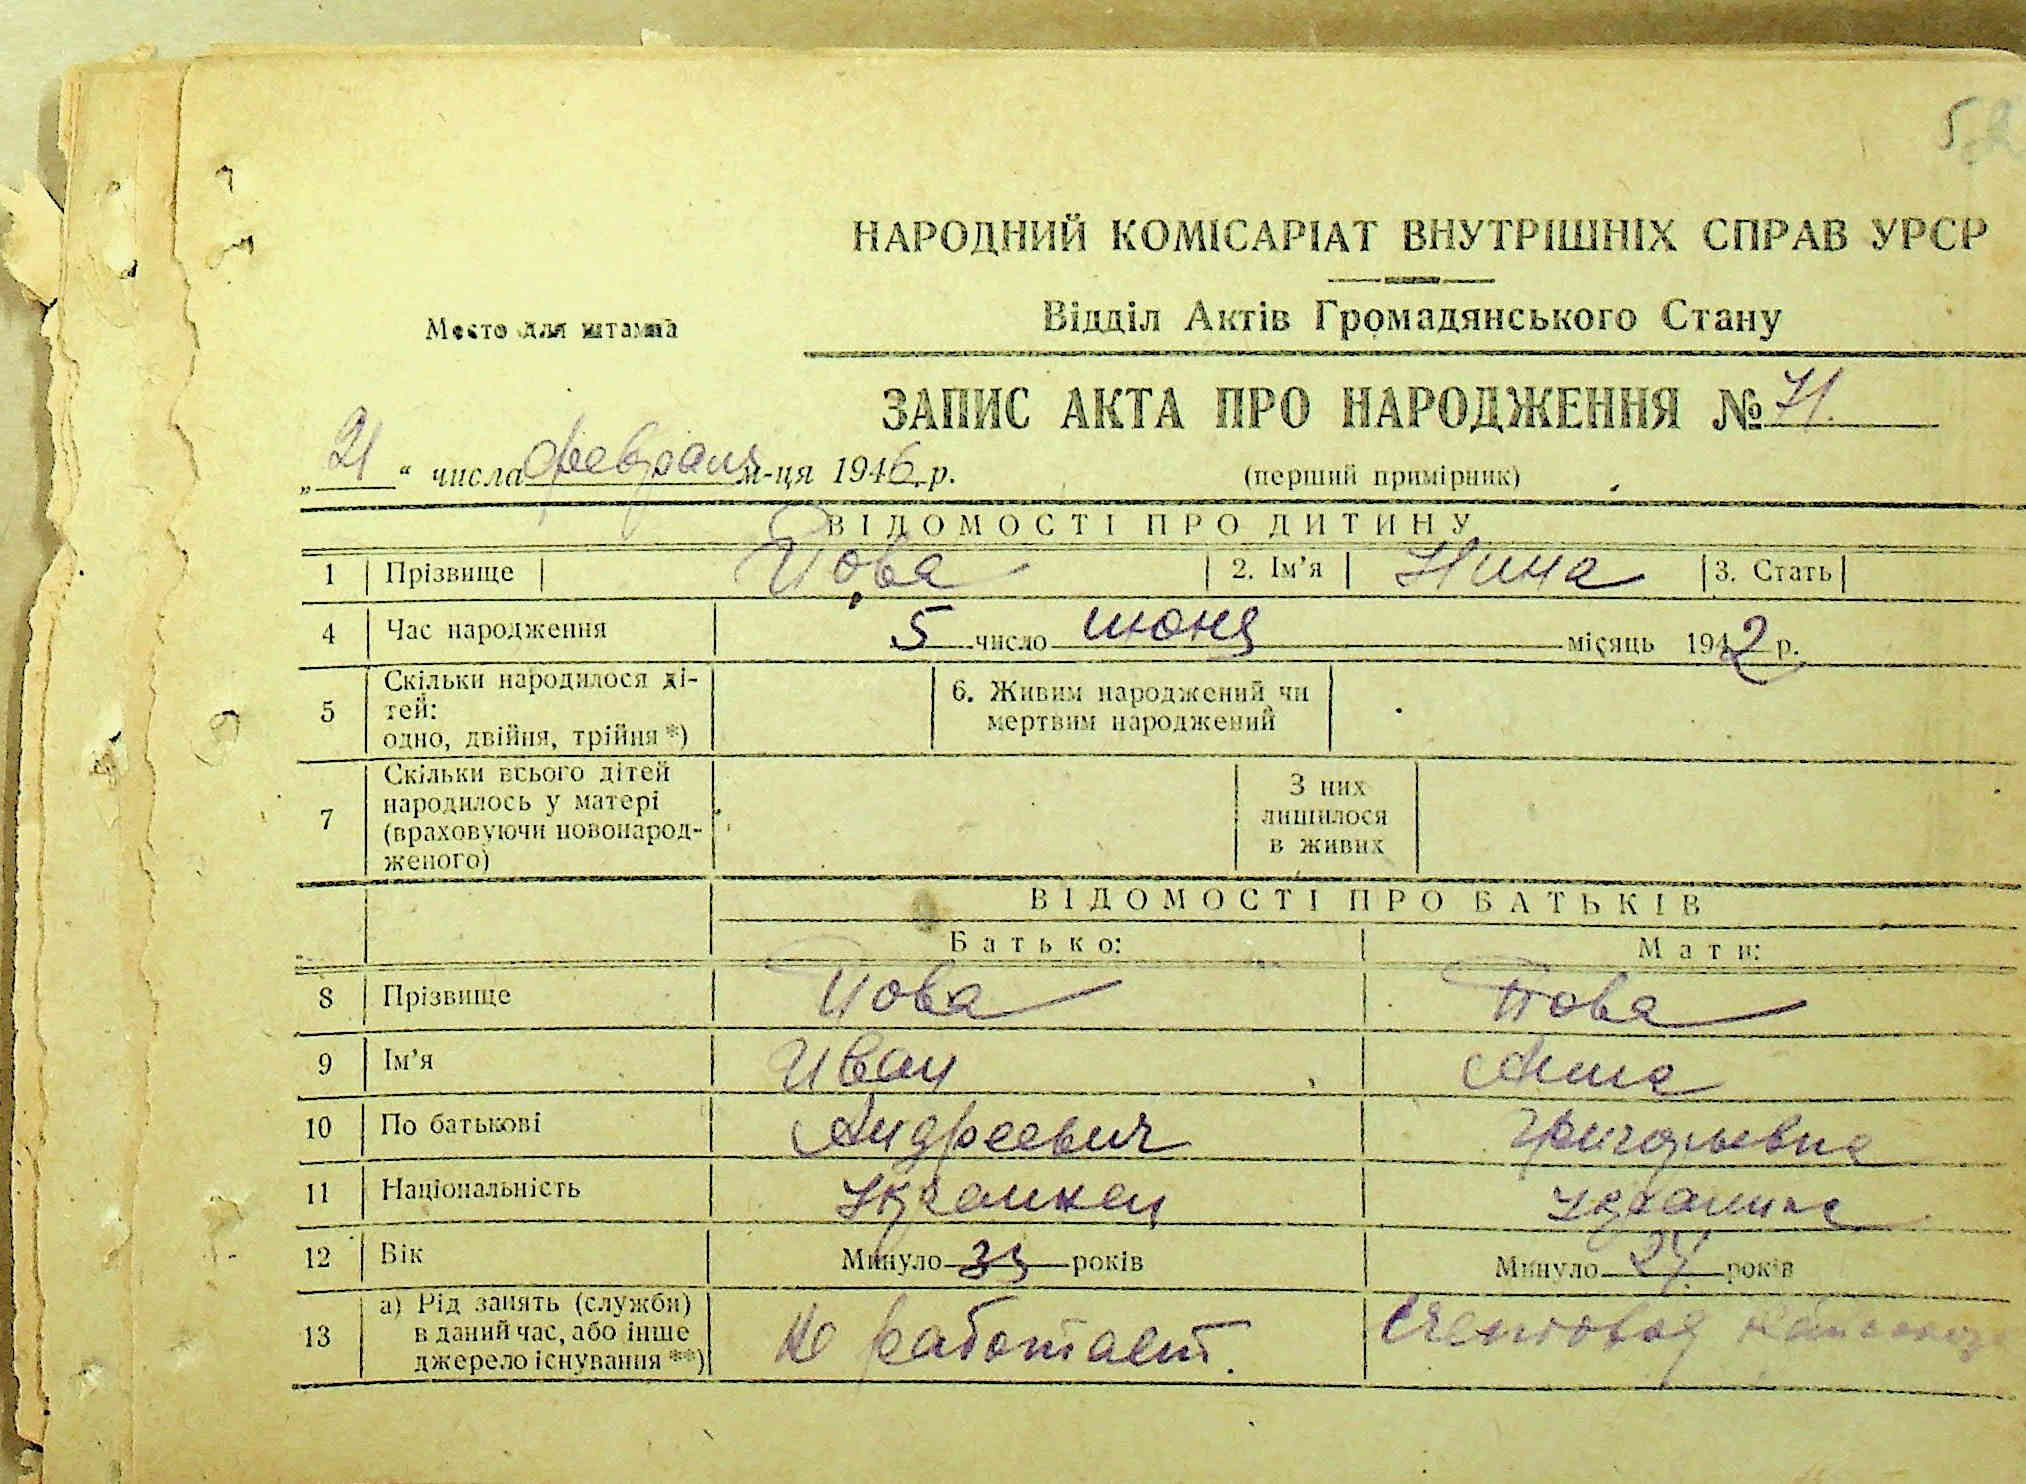 52
НАРОДНИЙ КОМІСАРІАТ ВНУТРІШНІХ СПРАВ УРСР
Відділ Актів Громадянського Стану
Место для штампа
ЗАПИС АКТА ПРО НАРОДЖЕННЯ № 71.
„21“ числа февраля м-ця 1946 р.
(перший примірник)
ВІДОМОСТІ ПРО ДИТИНУ
1 Прізвище Пова 2. Ім'я Нина 3. Стать
4 Час народження 5 число июня місяць 1942 р.
5 Скільки народилося ді-
тей:
одно, двійня, трійня *)
6. Живим народжений чи
мертвим народжений
7 Скільки всього дітей
народилось у матері
(враховуючи новонарод-
женого)
З них
лишилося
в живих
ВІДОМОСТІ ПРО БАТЬКІВ
Батько: Мати:
8 Прізвище Пова Пова
9 Ім'я Иван Анна
10 По батькові Андреевич Григорьевна
11 Національність Украинец украинка
12 Вік Минуло 33 років Минуло 27 років
13 а) Рід занять (служби)
в даний час, або інше
джерело існування **)
Не работает.